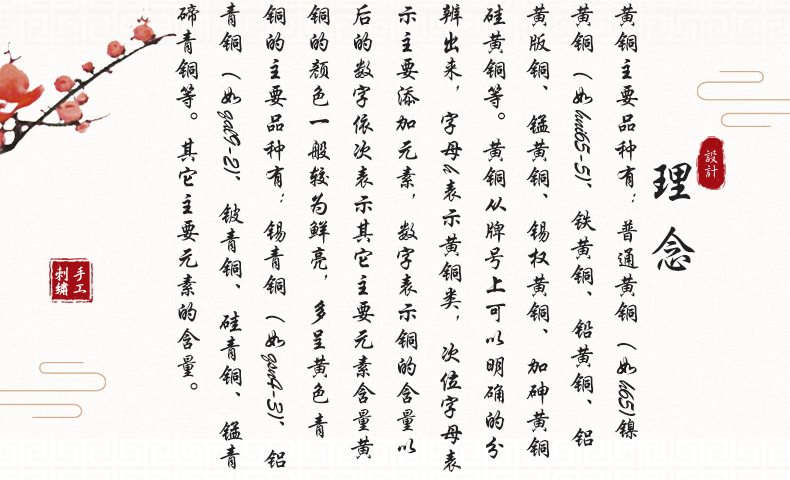 設計
理念
黄铜主要品种有：普通黄铜（如h65)镍
黄铜（如hni65-5)、铁黄铜、铅黄铜、铝
黄版铜、锰黄铜、锡权黄铜、加砷黄铜
硅黄铜等。黄铜从牌号上可以明确的分
辨出来，字母h表示黄铜类，次位字母表
示主要添加元素，数字表示铜的含量以
后的数字依次表示其它主要元素含量黄
铜的颜色一般较为鲜亮，多呈黄色 青
铜的主要品种有：锡青铜（如qsn4-3)、铝
青铜（如qal9-2)、铍青铜、硅青铜、锰青
碲青铜等。其它主要元素的含量。
手工
刺繡